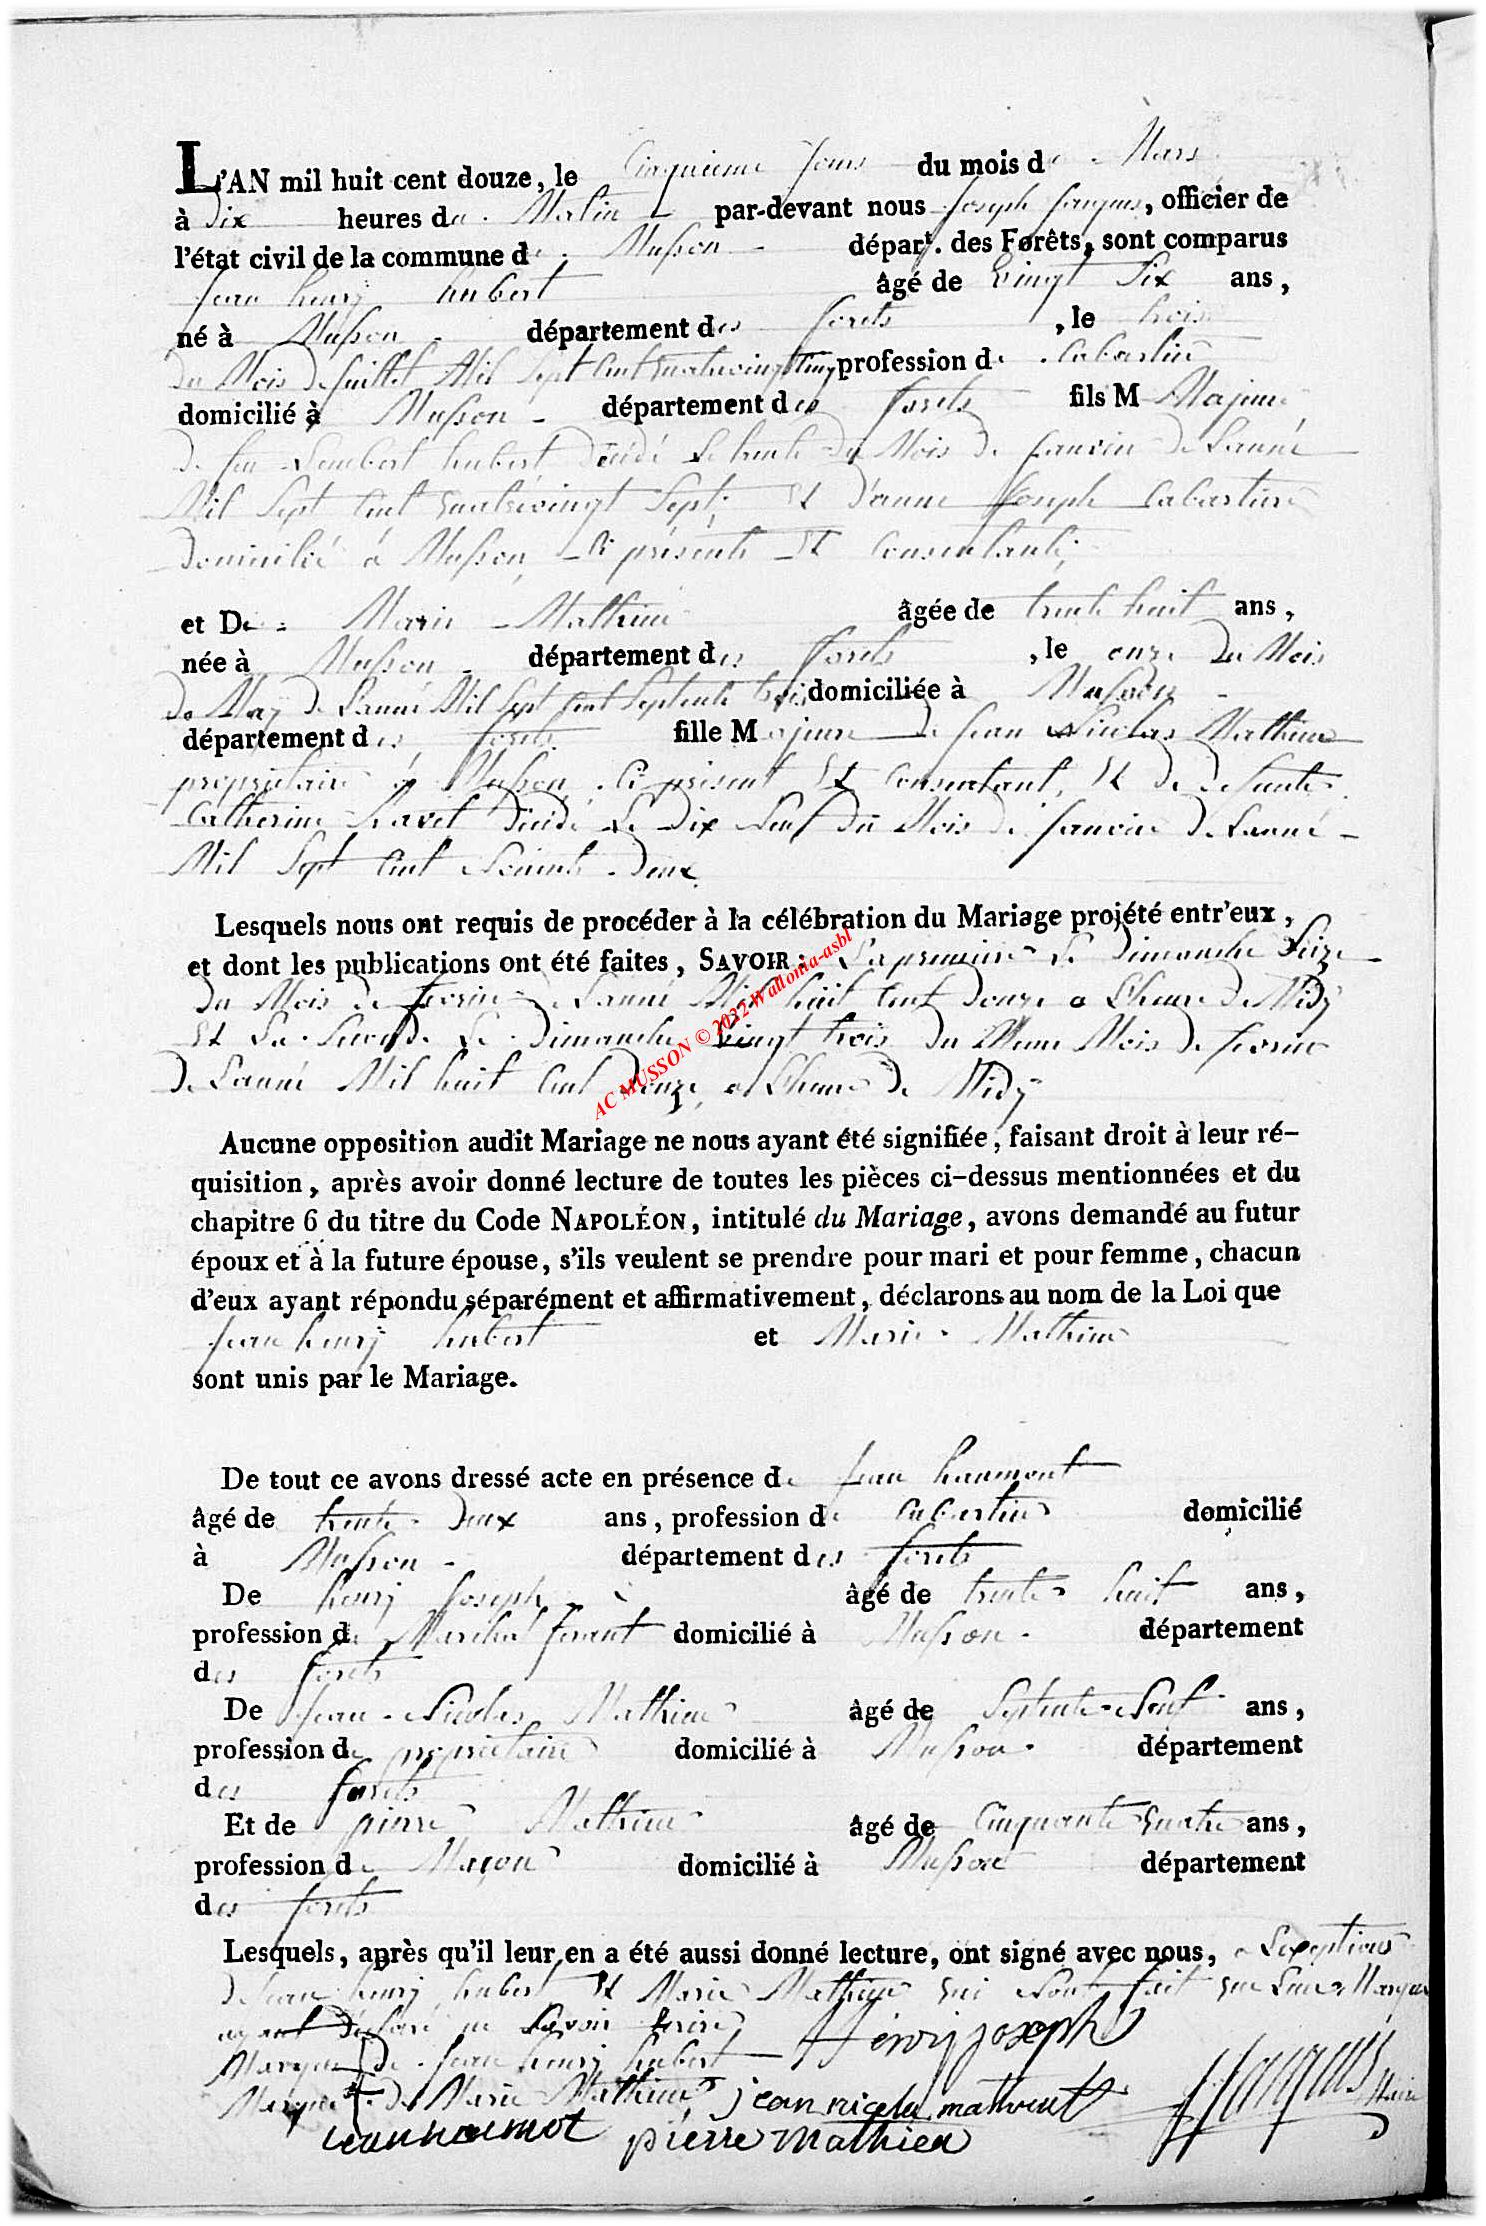 L'AN mil huit cent douze, le Cinquieme Jour du mois de Mars
à Dix heures du Matin par-devant nous Joseph Jacques, officier de
l'état civil de la commune de Musson départ. des Forêts, sont comparus
Jean henry hubert âgé de Vingt Six ans,
né à Musson département des forets, le trois
du Mois de Juillet Mil Sept Cent quatrevingt Cinq profession de Cabartier
domicilié à Musson département des forets fils Majeur
de feu Lambert hubert décédé Le trente du Mois de Janvier de Lanné
Mil Sept Cent quatrevingt Sept, Et d'anne Joseph Cabartiere
domiciliée a Musson, Ci présente Et Consentante,
et De Marie Mathieu âgée de trente huit ans,
née à Musson département des forets, le onze du Mois
de May de Lanné Mil Sept Cent Septente trois domiciliée à Musson
département des forets fille Majeure de Jean Nicolas Mathieu
propriétaire à Musson, Ci présent Et Consentant, Et de defunte
Catherine décédé Le Dix Neuf du Mois de Janvier de Lanné
Mil Sept Cent deux
Lesquels nous ont requis de procéder à la célébration du Mariage projété entr'eux,
et dont les publications ont été faites, SAVOIR: La premiere Le Dimanche Seize
du Mois de fevrier de Lanné Mil huit Cent Douze a Lheure de Midy
Et La Seconde Le Dimanche Vingt trois du Meme Mois de fevrier
de Lanné Mil huit Cent Douze, a Lheure de Midy
AC MUSSON © 2022-Wallonia-asbl
Aucune opposition audit Mariage ne nous ayant été signifiée, faisant droit à leur ré-
quisition, après avoir donné lecture de toutes les pièces ci-dessus mentionnées et du
chapitre 6 du titre du Code NAPOLÉON, intitulé du Mariage, avons demandé au futur
époux et à la future épouse, s'ils veulent se prendre pour mari et pour femme, chacun
d'eux ayant répondu séparément et affirmativement, déclarons au nom de la Loi que
Jean henry hubert et Marie Mathieu
sont unis par le Mariage.
De tout ce avons dressé acte en présence de Jean haumont
âgé de trente Deux ans, profession de Cabartier domicilié
à Musson département des forets
De henry Joseph âgé de trente huit ans,
profession de Marchal ferant domicilié à Musson département
des forets
De Jean Nicolas Mathieu âgé de Septente Neuf ans,
profession de propriétaire domicilié à Musson département
des forets
Et de pierre Mathieu âgé de Cinquante quatre ans,
profession de Maçon domicilié à Musson département
des forets
Lesquels, après qu'il leur en a été aussi donné lecture, ont signé avec nous, a Lexeptions
de Jean henry hubert Et Marie Mathieu qui nont fait que Leurs Marques
ayant déclaré ne Savoir Ecrire
Marque de Jean henry hubert henrij joseph
Marque de Marie Mathieu jean nicola mathieu JJacques Maire
jean haumot pierre Mathieu